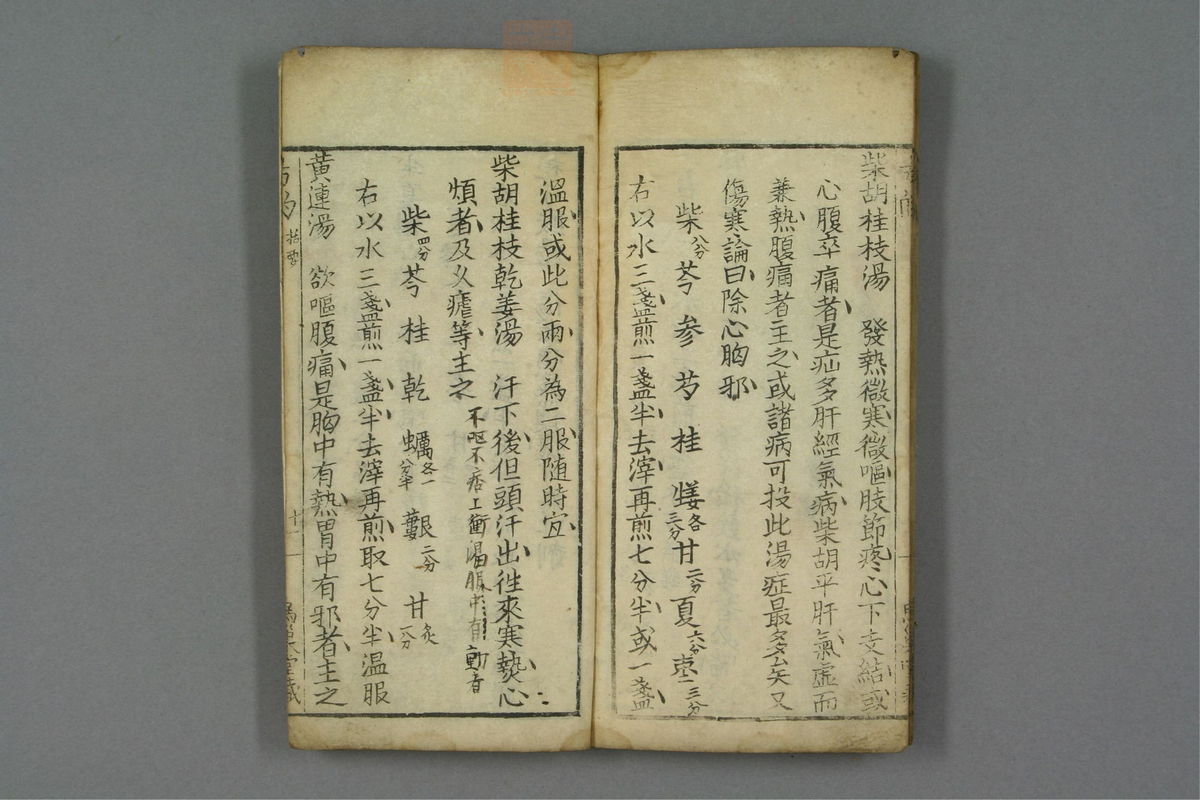 柴胡桂枝湯　發熱微寒微嘔肢節疼心下支結或
心腹卒痛者是疝多肝經氣病柴胡平肝氣虛而
兼熱腹痛者主之或諸病可投此湯症最多矣又
傷寒論曰除心胸邪
柴八分 芩 参 芍 桂 姜各三分 甘二分 夏六分 枣二三分
右以水三盞煎一盞半去滓再煎七分半或一盞
溫服或此分兩分為二服随時宜
柴胡桂枝乾姜湯　汗下後但頭汗出徃來寒熱心
煩者及久瘧等主之 不呕不痞上衝渴 中有動者
柴四分 芩 桂 乾 蠣各一分半 蔞二分 甘炙一分
右以水三盞煎一盞半去滓再煎取七分半温服
黄連湯　欲嘔腹痛是胸中有熱胃中有邪者主之
十一